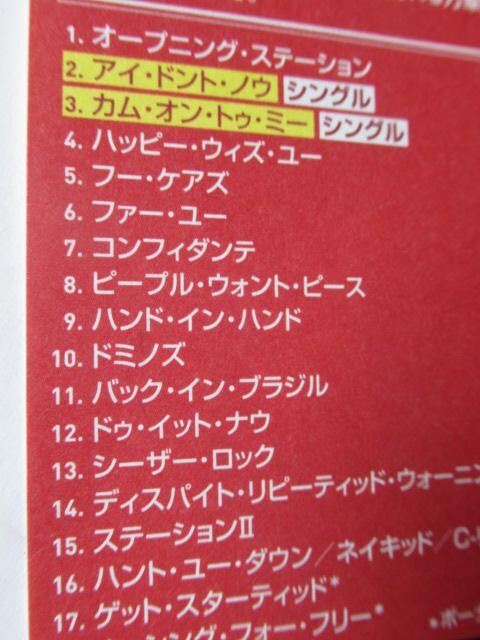 1. オープニング・ステーション
2. アイ・ドント・ノウ シングル
3. カム・オン・トゥ・ミー シングル
4. ハッピー・ウィズ・ユー
5. フー・ケアズ
6. ファー・ユー
7. コンフィダンテ
8. ピープル・ウォント・ピース
9. ハンド・イン・ハンド
10. ドミノズ
11. バック・イン・ブラジル
12. ドゥ・イット・ナウ
13. シーザー・ロック
14. ディスパイト・リピーティッド・ウォーニン
15. ステーションⅡ
16. ハント・ユー・ダウン/ネイキッド/C-
17. ゲット・スターティッド*
シング・フォー・フリー* *ボー